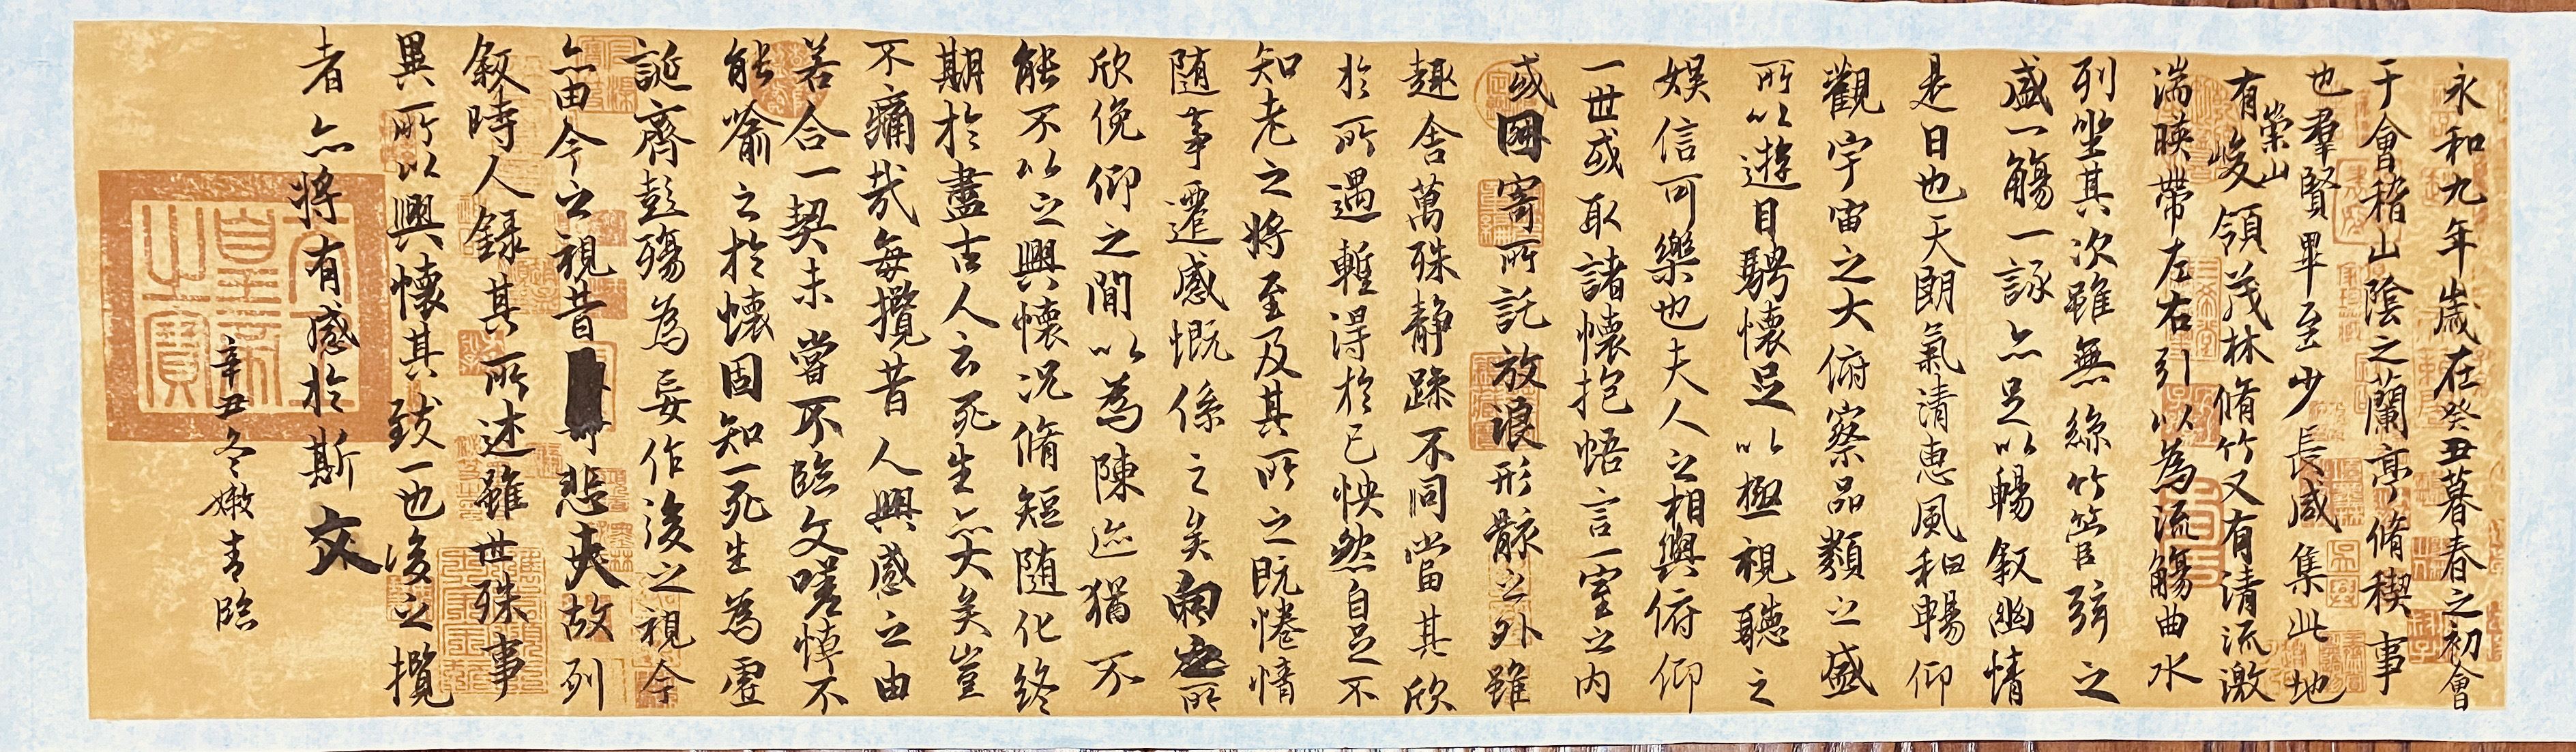 永和九年歲在癸丑暮春之初會
于會稽山陰之蘭亭脩稧事
也羣賢畢至少長咸集此地
有崇山峻領茂林脩竹又有清流激
湍暎帶左右引以為流觴曲水
列坐其次雖無絲竹管弦之
盛一觴一詠亦足以暢敘幽情
是日也天朗氣清惠風和暢仰
觀宇宙之大俯察品類之盛
所以遊目騁懷足以極視聽之
娛信可樂也夫人之相與俯仰
一世或取諸懷抱悟言一室之內
或因寄所託放浪形骸之外雖
趣舍萬殊靜躁不同當其欣
於所遇蹔得於己怏然自足不
知老之將至及其所之既惓情
隨事遷感慨係之矣向之所
欣俛仰之閒以為陳迹猶不
能不以之興懷況脩短隨化終
期於盡古人云死生亦大矣豈
不痛哉每攬昔人興感之由
若合一契未嘗不臨文嗟悼不
能喻之於懷固知一死生為虛
誕齊彭殤為妄作後之視今
亦由今之視昔悲夫故列
敘時人錄其所述雖世殊事
異所以興懷其致一也後之攬
者亦將有感於斯文
辛丑冬嫩青臨
太上皇帝之寶